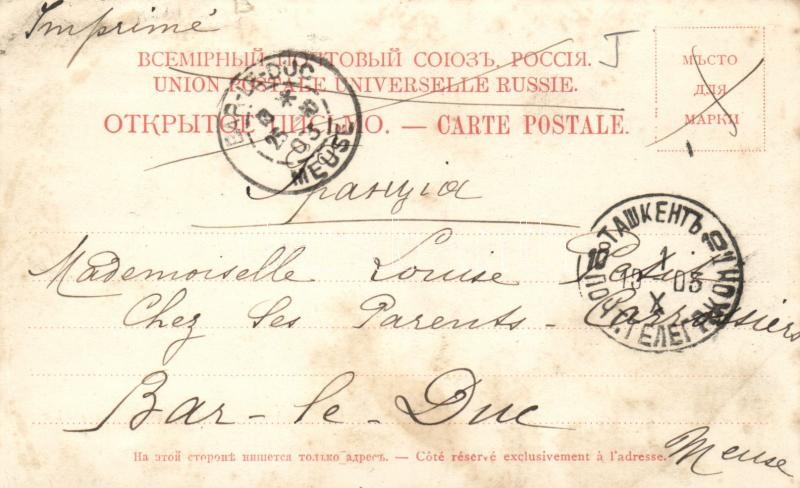 Imprimé
ВСЕМІРНЫЙ ПОЧТОВЫЙ СОЮЗЪ. РОССІЯ.
UNION POSTALE UNIVERSELLE RUSSIE.
ОТКРЫТОЕ ПИСЬМО. — CARTE POSTALE.
МѢСТО
ДЛЯ
МАРКИ
BAR-LE-DUC
MEUSE
Франція
ТАШКЕНТЪ
ПОЧТ. ТЕЛЕГР. КОН
Mademoiselle Louise
Chez ses Parents - Carrossiers
Bar-le-Duc
Meuse
На этой сторонѣ пишется только адресъ. — Côté réservé exclusivement à l'adresse.